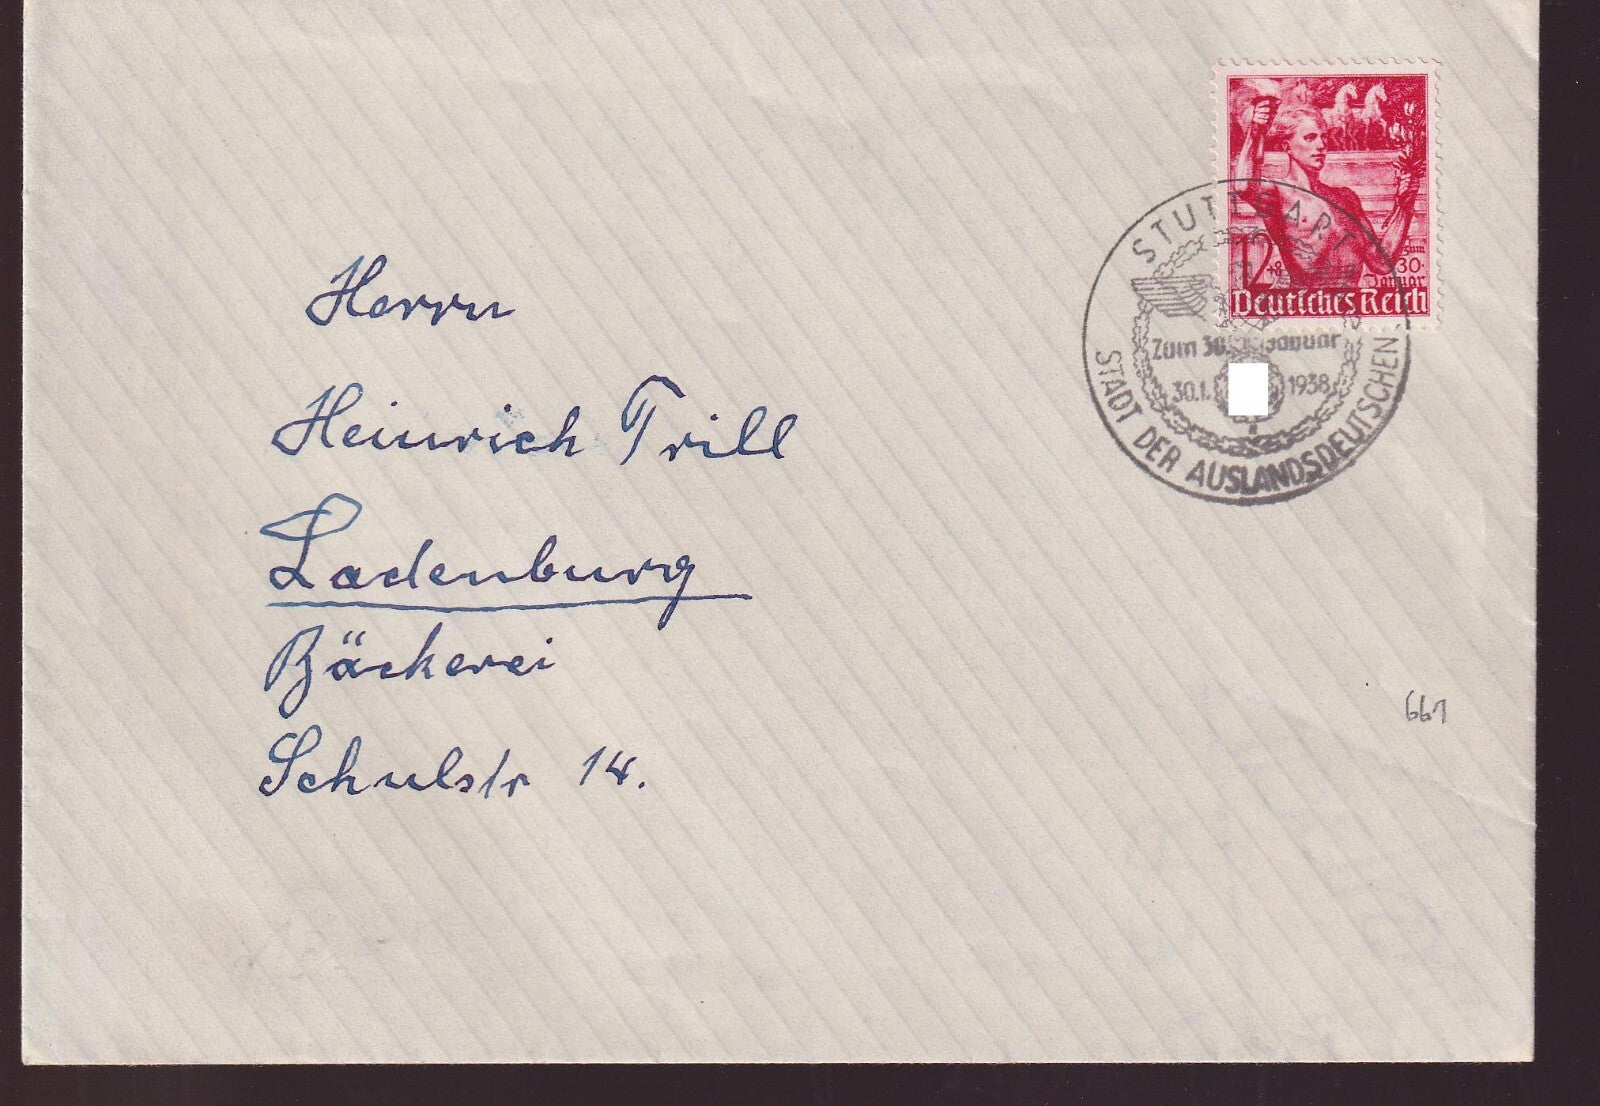 12
+8
zum
30.
Januar
Deutsches Reich
STUTTGART
Zum 30. Januar
30.1. 1938
STADT DER AUSLANDSDEUTSCHEN
Herrn
Heinrich Trill
Ladenburg
Bäckerei
Schulstr 14.
661